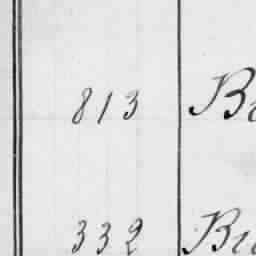 813 Br
332 Br